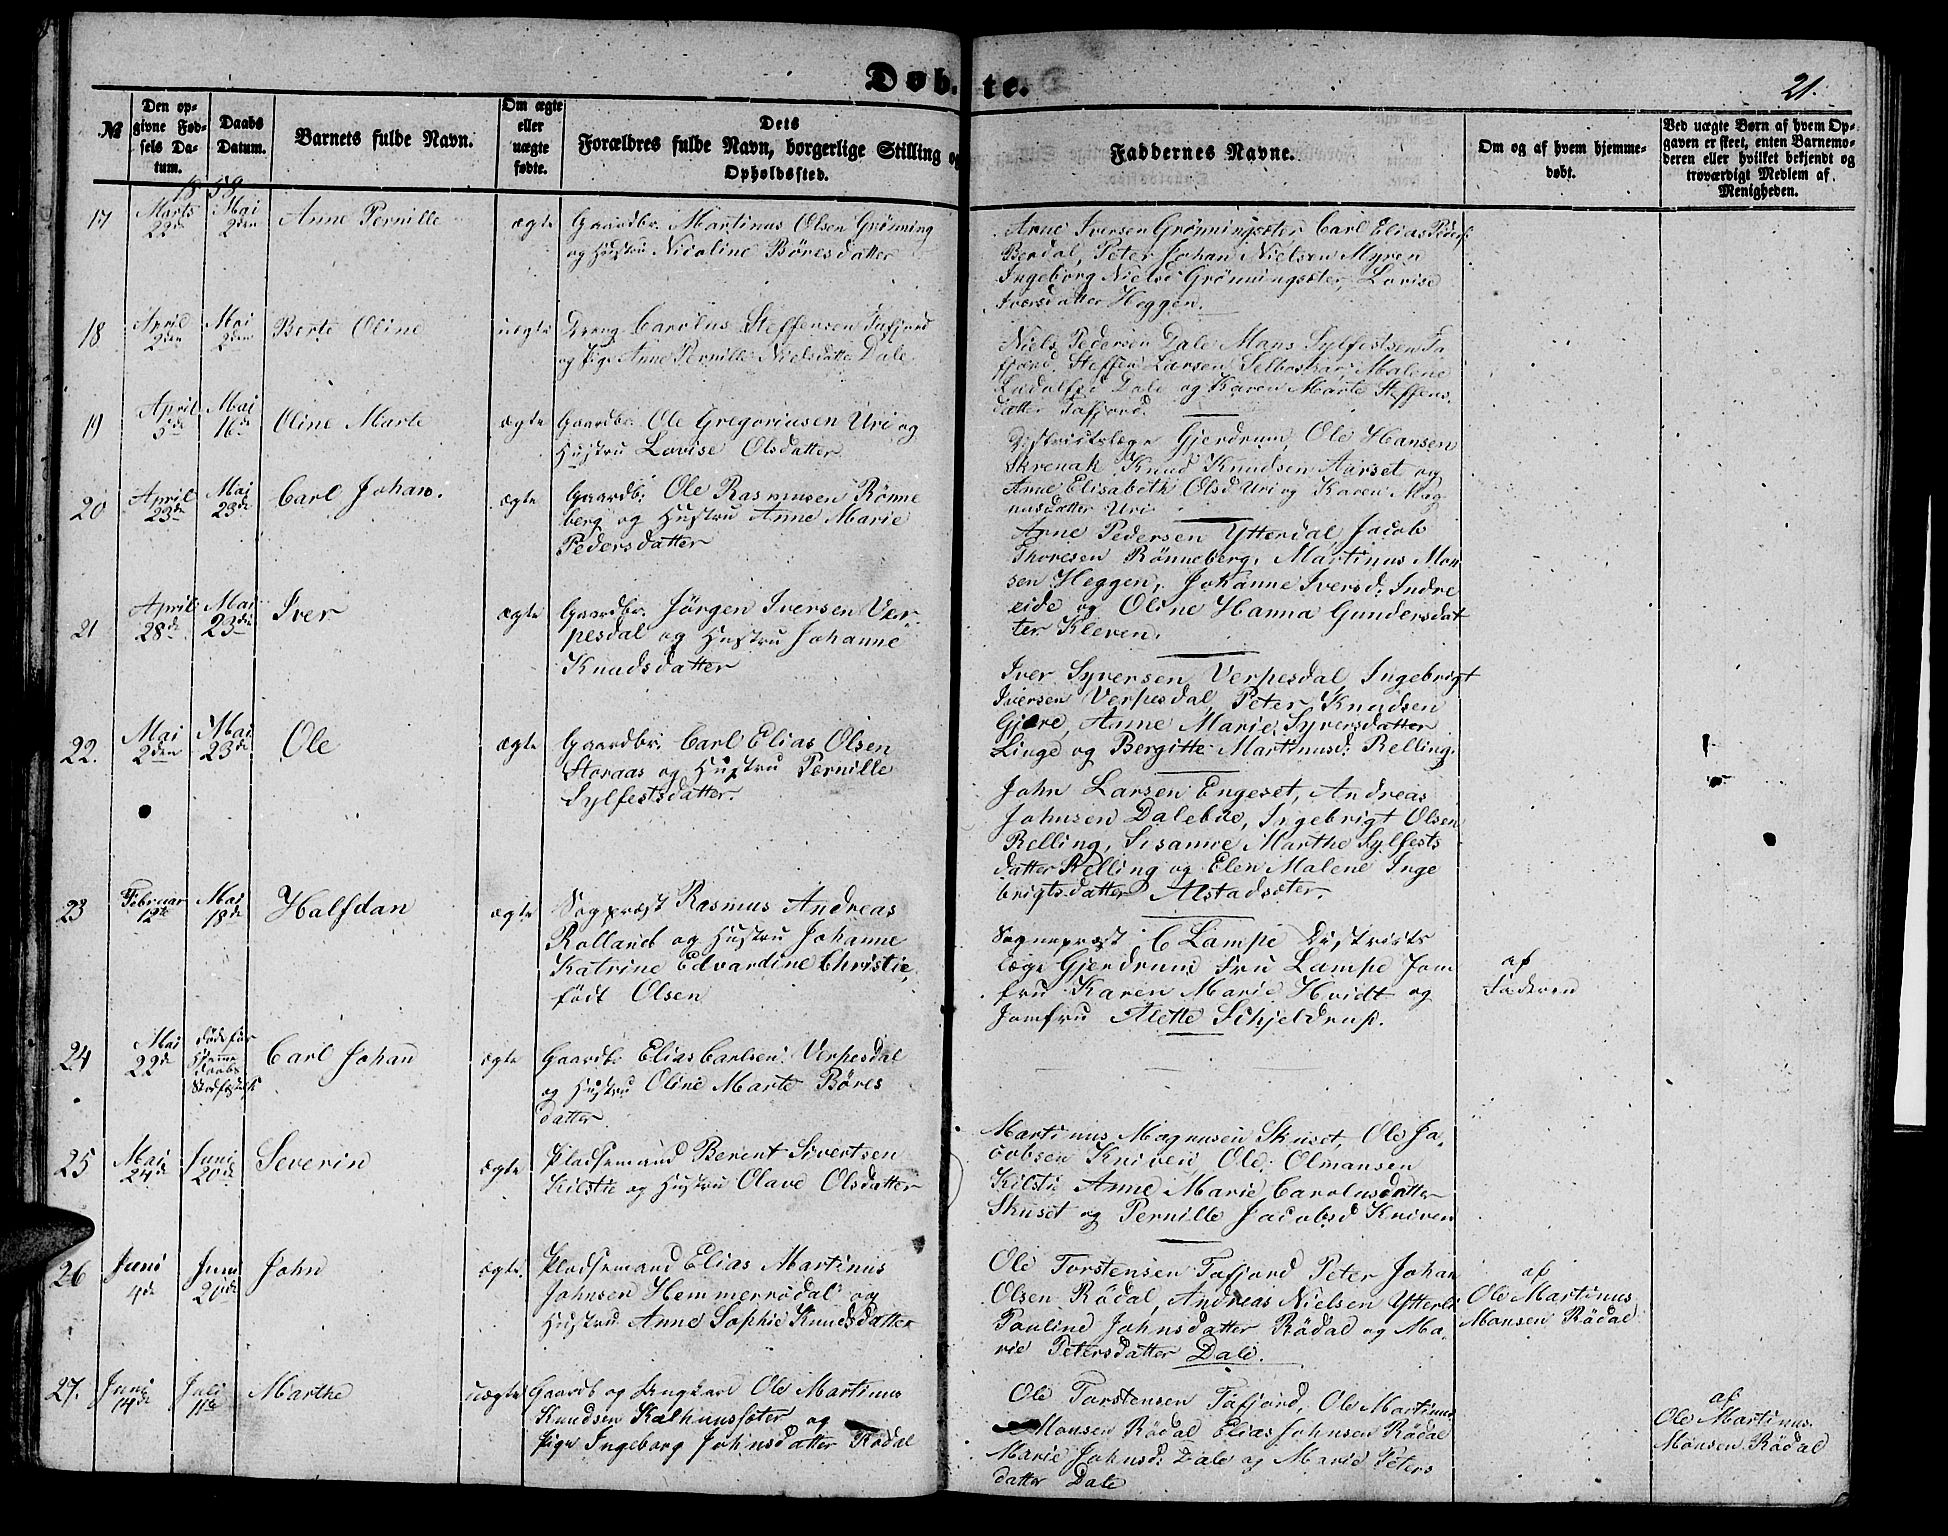 Døbte.
21.
№
Den opgivne Fødsels Datum.
Daabs Datum.
Barnets fulde Navn.
Om ægte eller uægte fødte.
Dets Forældres fulde Navn, borgerlige Stilling og Opholdssted.
Faddernes Navne.
Om og af hvem hjemmedøbt.
Ved uægte Børn af hvem Opgaven er skeet, enten Barnemoderen eller hvilket bekjendt og troværdigt Medlem af Menigheden.
1858
17 Marts 22de Mai 2den Anne Pernille ægte
Gaardbr. Martinus Olsen Grønning
og Hustru Nicoline Børesdatter
Arne Iversen Grønningsæter Carl Elias Peders.
Berdal, Peter Johan Nielsen Myren
Ingeborg Nielsd Grønningsæter, Lovise
Iversdatter Heggen.
18 April 2den Mai 2den Berte Oline uægte
Dreng Carolus Steffensen Tafjord
og Pige Anne Pernille Nielsdatte Dale
Niels Pedersen Dale Mons Sylfestsen Ta
fjord, Steffen Larsen Selboskar, Malene
Ladolfsd Dale og Karen Marte Steffens-
datter Tafjord.
19 April 5de Mai 16de Oline Marte ægte
Gaardbr. Ole Gregoriusen Uri og
Hustru Lovise Olsdatter
Distriktslæge Gjerdrum, Ole Hansen
Skrenak Knud Knudsen Aarset og
Anne Elisabeth Olsd Uri og Karen Mag
nusdatter Uri
20 April 23de Mai 23de Carl Johan. ægte
Gaardb: Ole Rasmusen Rønne
berg og Hustru Anne Marie
Pedersdatter
Arne Pedersen Ytterdal Jacob
Thoresen Rønneberg, Martinus Mon
sen Heggen, Johanne Iversd: Indre
eide og Oline Hanna Gundersdat
ter Kleven.
21 April 28de Mai 23de Iver ægte
Gaardbr. Jørgen Iversen Ver-
pesdal og Hustru Johanne
Knudsdatter
Iver Syversen Verpesdal Ingebrigt
Iversen Verpesdal, Peter Knudsen
Gjære, Anne Marie Syversdatter
Linge og Bergitte Martinusd: Relling.
22. Mai 2den Mai 23de Ole ægte
Gaardbr. Carl Elias Olsen
Storaas og Hustru Pernille
Sylfestsdatter.
John Larsen Engeset, Andreas
Johnsen Dalebue, Ingebrigt Olsen
Relling, Sisanne Marthe Sylfests
datter Relling og Elen Malene Inge
brigtsdatter Alstadsæter.
23 Februar 12te Mai 18de Halfdan ægte
Sogpræst Rasmus Andreas
Rolland og Hustru Johanne
Katrine Edvardine Christie,
født Olsen
Sognepræst C Lampe Distrikts
læge Gjerdrum Fru Lampe Jom
fru Karen Marie Hvidt og
Jomfru Alette Schjeldrup.
af
Faderen
24 Mai 22de Døde før Hjemme Daabs Carl Johan ægte
Gaardb: Elias Carlsen Verpesdal
og Hustru Oline Marte Børes
datter.
25 Mai 24de Juni 20de Severin ægte
Pladsemand Berent Sivertsen
Kilstie og Hustru Olave Olsdatter
Martinus Magnusen Skuset, Ole Ja-
cobsen Kniven Ole Olmansen
Kilsti Anne Marie Carolusdatter
Skuset og Pernille Jacobsd Kniven
26 Juni 4de Juni 20de John ægte.
Pladsemand Elias Martinus
Johnsen Hemmerrødal og
Hustru Anne Sophie Knudsdatter
Ole Torstensen Tafjord Peter Johan
Olsen Rødal, Andreas Nielsen Ytterli
Pauline Johnsdatter Rødal og Ma-
rie Petersdatter Dale.
af
Ole Martinus
Monsen Rødal
27. Juni 14de Juli 11te Marthe uægte
Gaardb og Ungkarl Ole Martinus
Knudsen Kalhussæter og
Pige Ingeborg Johnsdatter Rødal
Ole Torstensen Tafjord, Ole Martinus
Monsen Rødal Elias Johnsen Rødal
Marie Johnsd: Dale og Marie Peters
datter Dale
af
Ole Martinus
Monsen Rødal